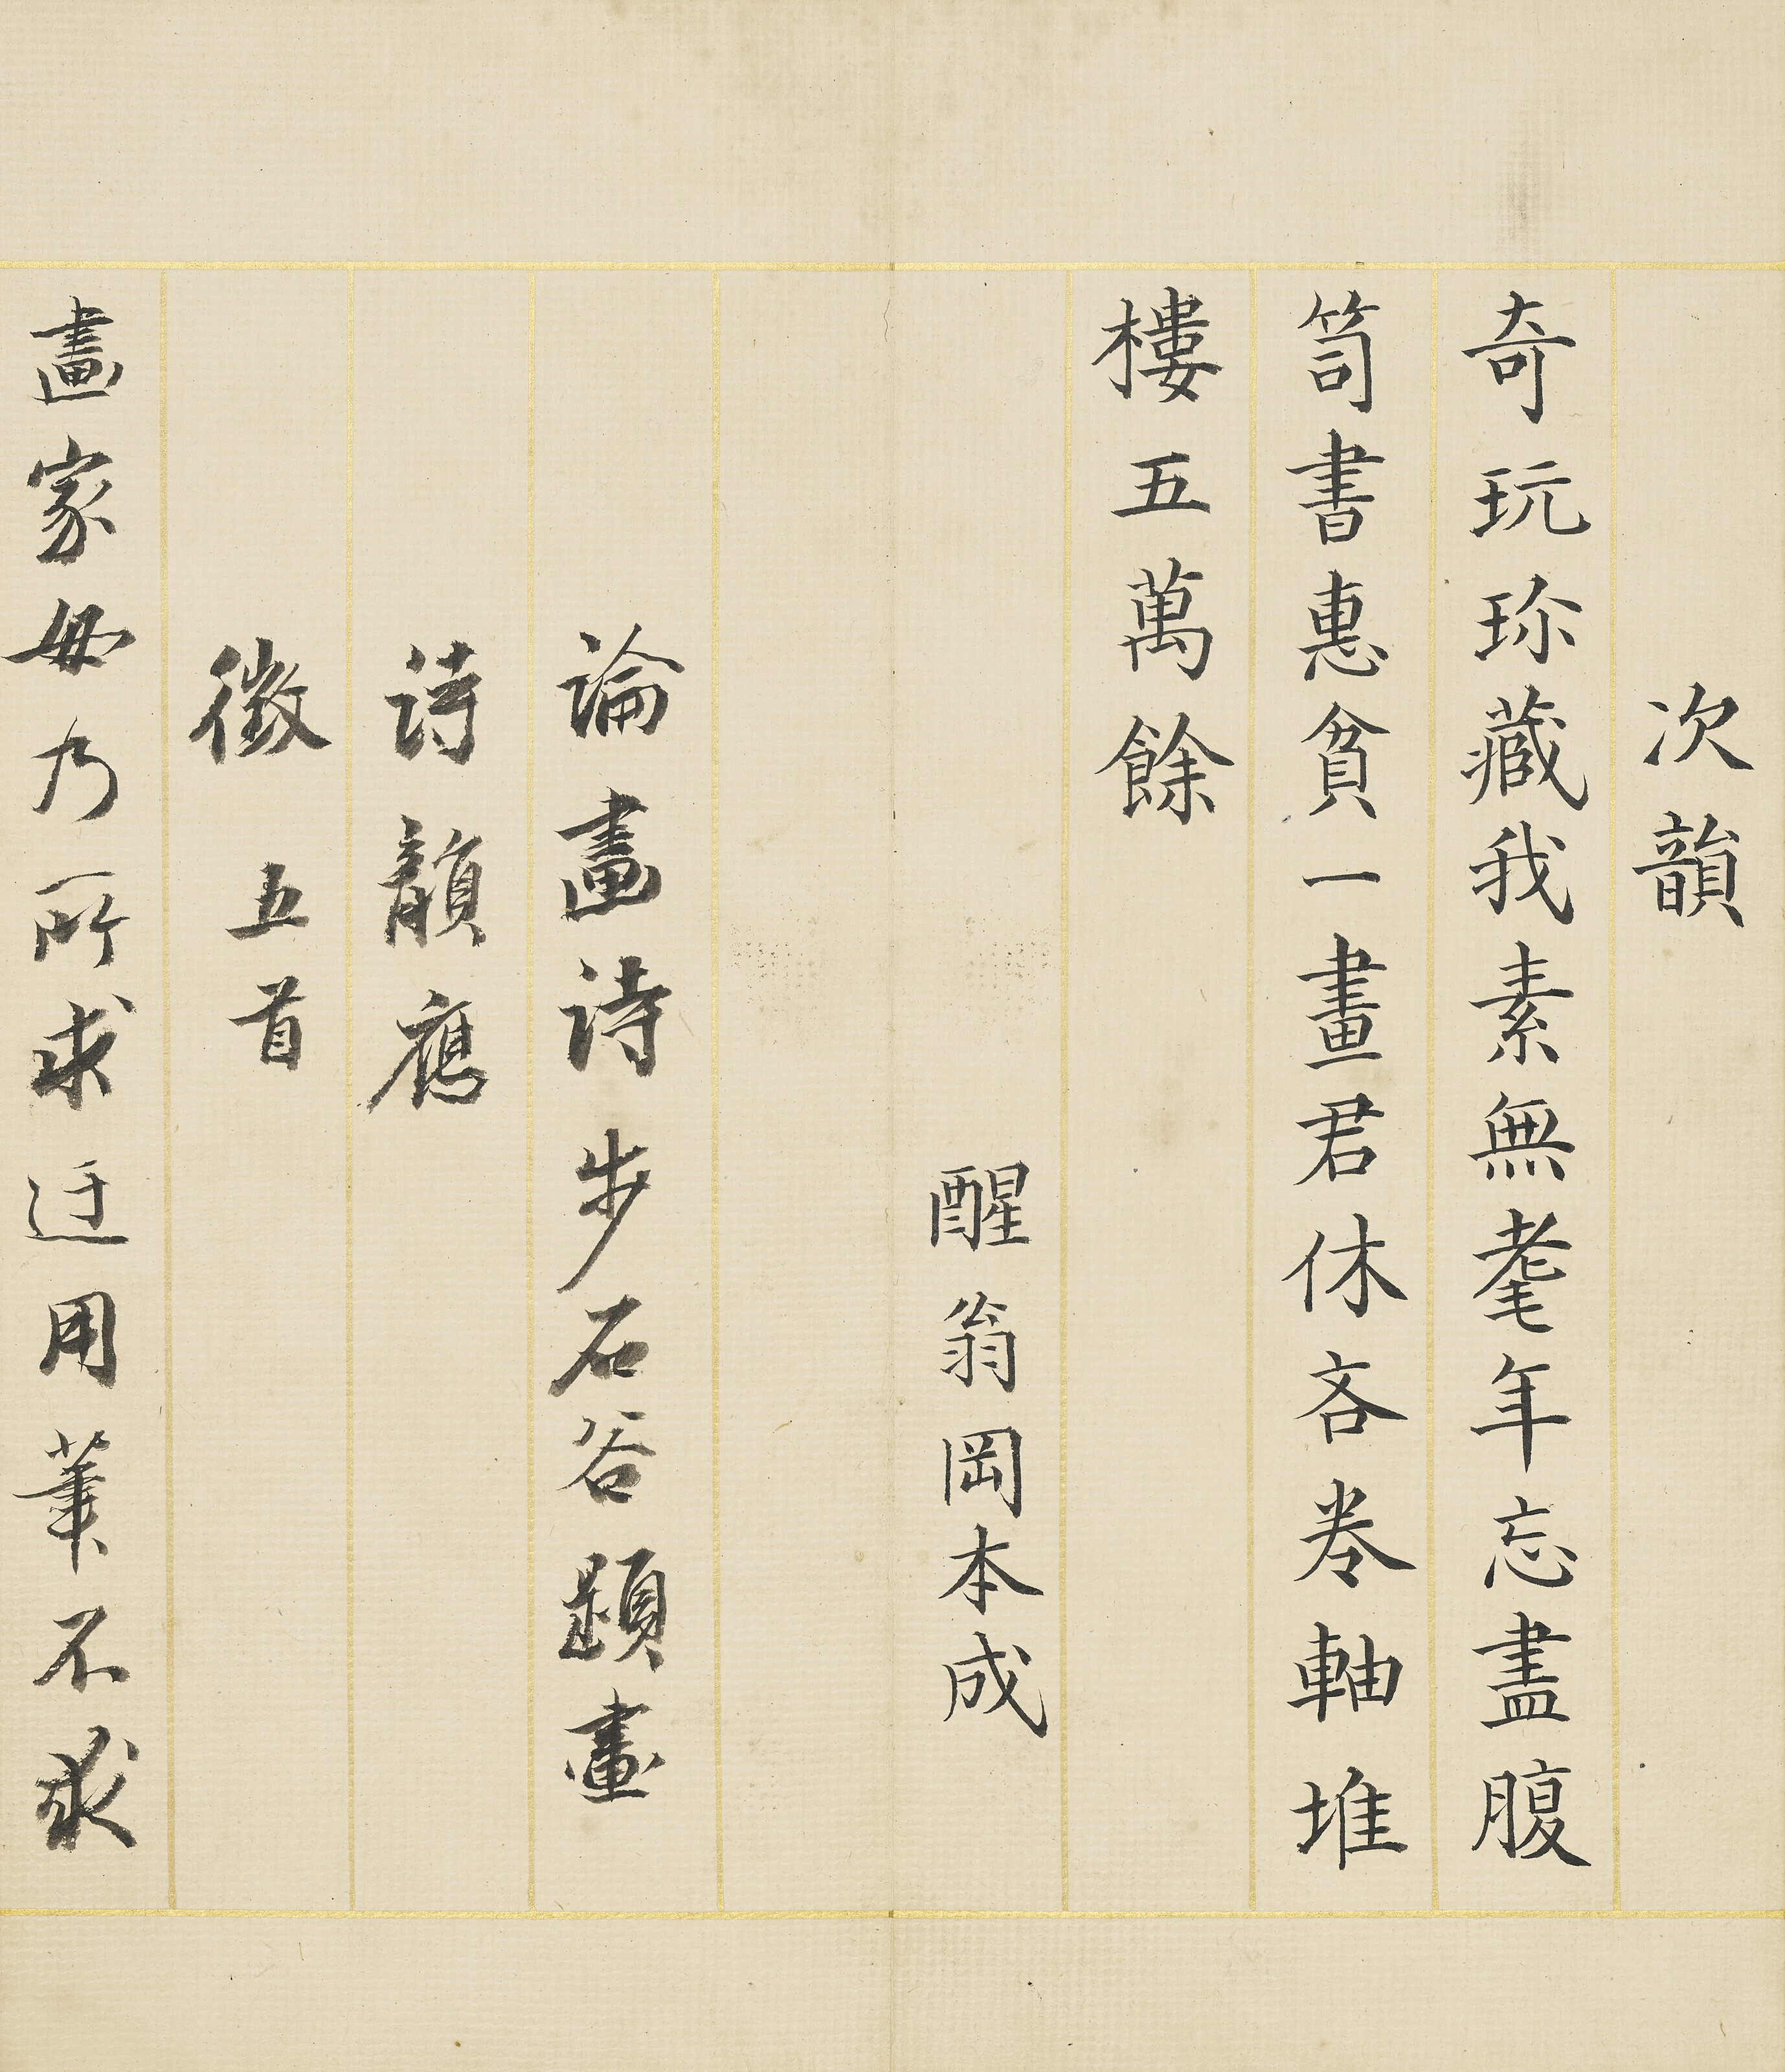 次韻
奇玩珎藏我素無耄年忘盡腹
笥書惠貧一畫君休吝卷軸堆
樓五萬餘
醒翁岡本成
論畫詩步石谷題畫
詩韻應
徵五首
畫家毋乃所求迂用筆不求